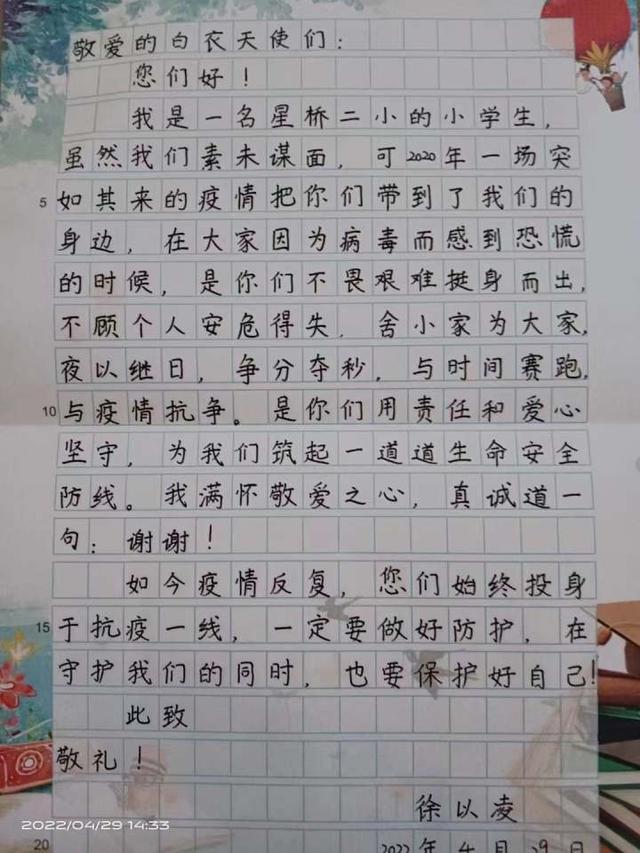 敬爱的白衣天使们：
您们好！
我是一名星桥二小的小学生，
虽然我们素未谋面，可2020年一场突
5 如其来的疫情把你们带到了我们的
身边，在大家因为病毒而感到恐慌
的时候，是你们不畏艰难挺身而出，
不顾个人安危得失，舍小家为大家，
夜以继日，争分夺秒，与时间赛跑，
10 与疫情抗争。是你们用责任和爱心
坚守，为我们筑起一道道生命安全
防线。我满怀敬爱之心，真诚道一
句：谢谢！
如今疫情反复，您们始终投身
15 于抗疫一线，一定要做好防护，在
守护我们的同时，也要保护好自己！
此致
敬礼！
徐以凌
2022/04/29 14:33
20 2022年4月29日